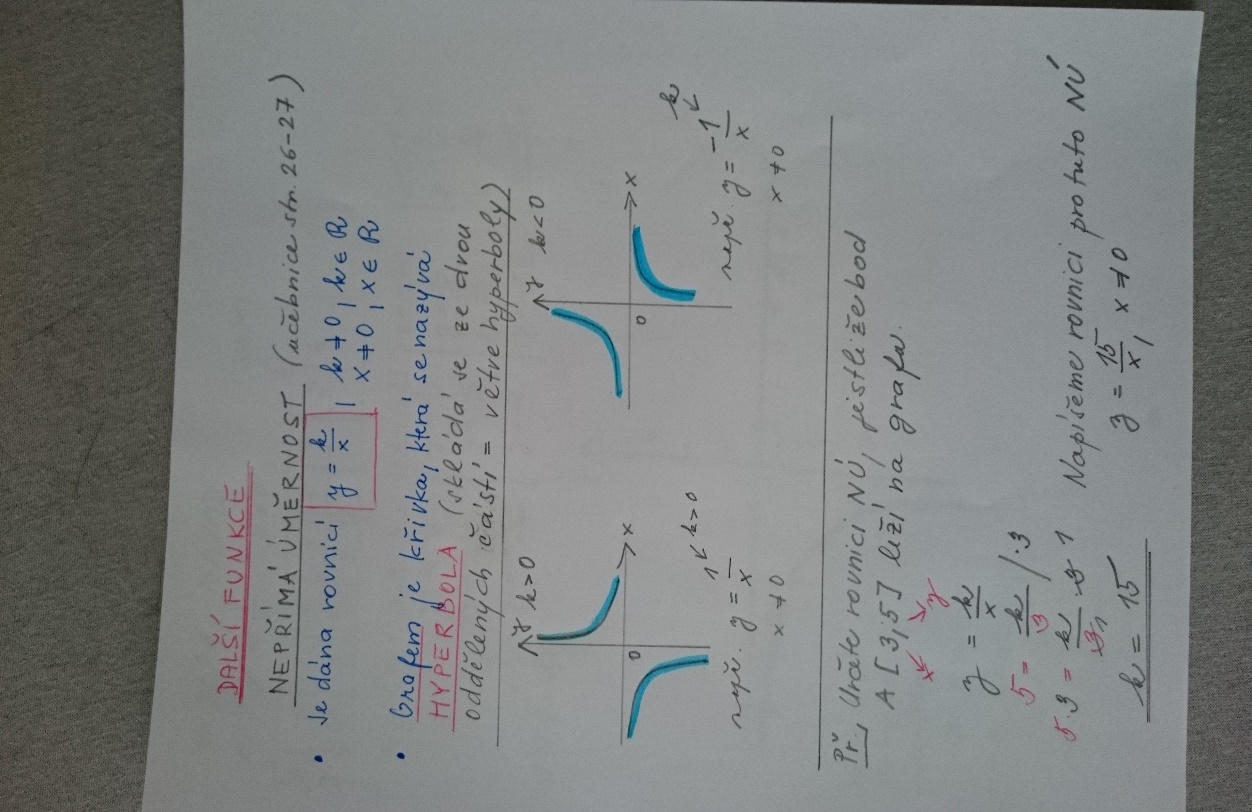 DALŠÍ FUNKCE
NEPŘÍMÁ ÚMĚRNOST (učebnice str. 26-27)
• Je dána rovnicí y = k/x, k ≠ 0, k ∈ R
x ≠ 0, x ∈ R
• Grafem je křivka, která se nazývá
HYPERBOLA (skládá se ze dvou
oddělených částí = větve hyperboly)
y k>0
x
0
např. y = 1/x k>0
x ≠ 0
y k<0
x
0
např. y = -1/x k
x ≠ 0
Př., Určete rovnici NÚ, jestliže bod
A [3,5] leží na grafu.
x y
y = k/x
5 = k/3 /·3
5·3 = k/3 · 3 1
1
k = 15
Napíšeme rovnici pro tuto NÚ
y = 15/x, x ≠ 0